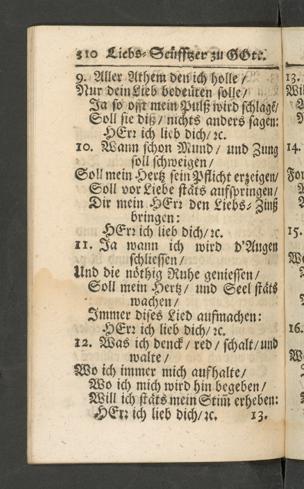 310 Liebs-Seüfftzer zu GOtt.
9. Aller Athem den ich holle /
Nur dein Lieb bedeüten solle /
Ja so offt mein Pulß wird schlagē /
Soll sie diß / nichts anders sagen:
HErr ich lieb dich / ꝛc.
10. Wann schon Mund / und Zung
soll schweigen /
Soll mein Hertz sein Pflicht erzeigen /
Soll vor Liebe stäts auffspringen /
Dir mein HErr den Liebs-Zinß
bringen:
HErr ich lieb dich / ꝛc.
11. Ja wann ich wird d'Augen
schliessen /
Und die nöthig Ruhe geniessen /
Soll mein Hertz / und Seel stäts
wachen /
Immer dises Lied aufmachen:
HErr ich lieb dich / ꝛc.
12. Was ich denck / red / schalt / und
walte /
Wo ich immer mich aufhalte /
Wo ich mich wird hin begeben /
Will ich stäts mein Stim̄ erheben:
HErr ich lieb dich / ꝛc. 13.
13.
14.
15.
16.